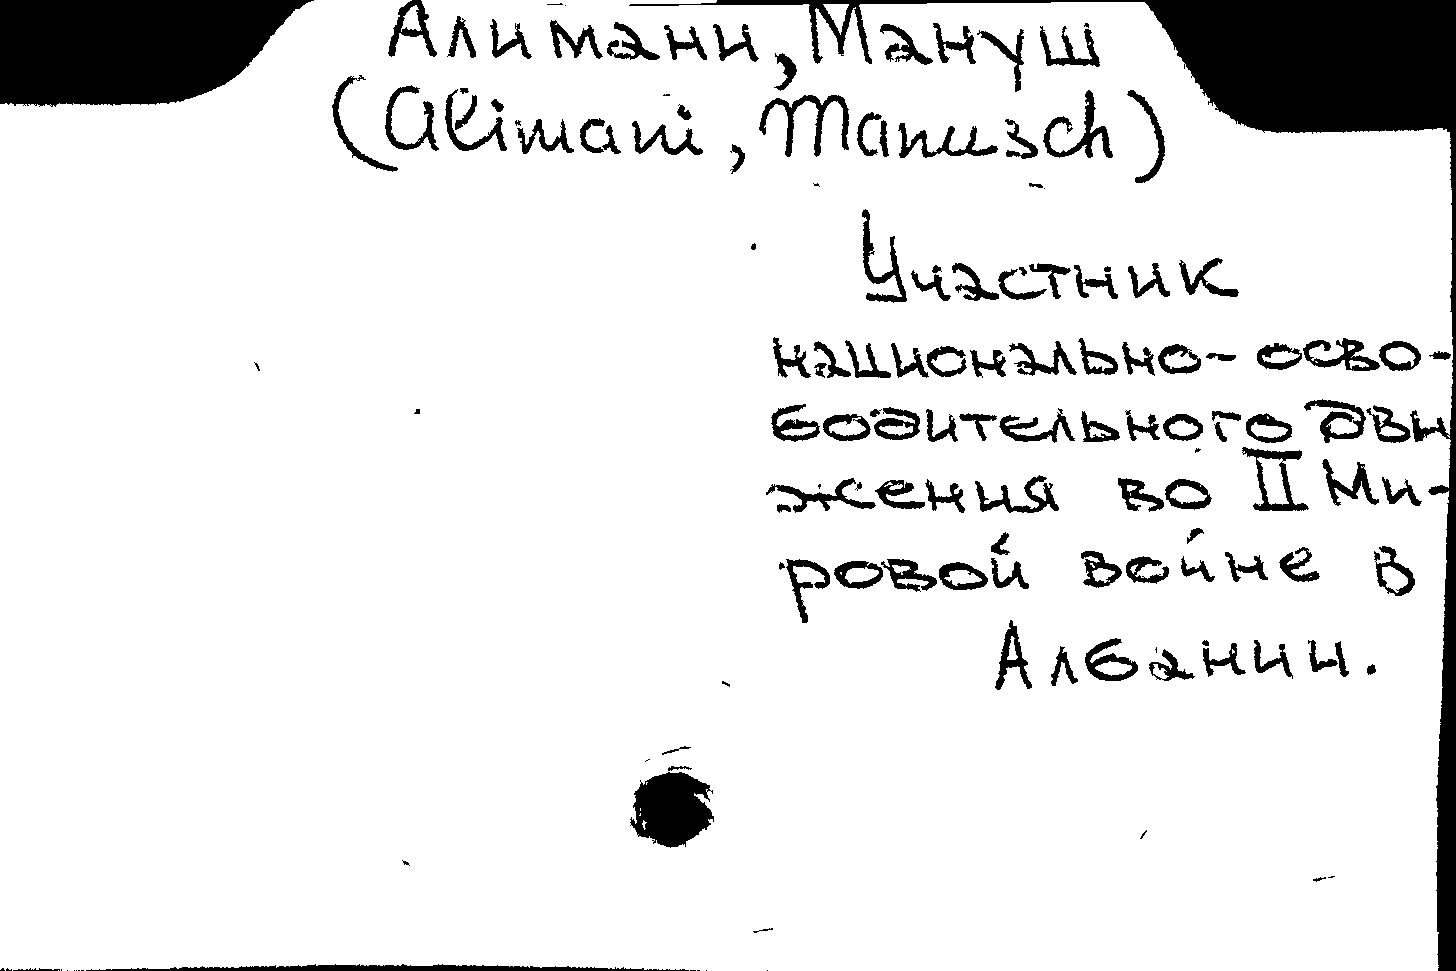 Алимани, Мануш
(Alimani, Manusch)
Участник
национально-осво-
бодительного дви
жения во II Ми-
ровой войне в
Албании.